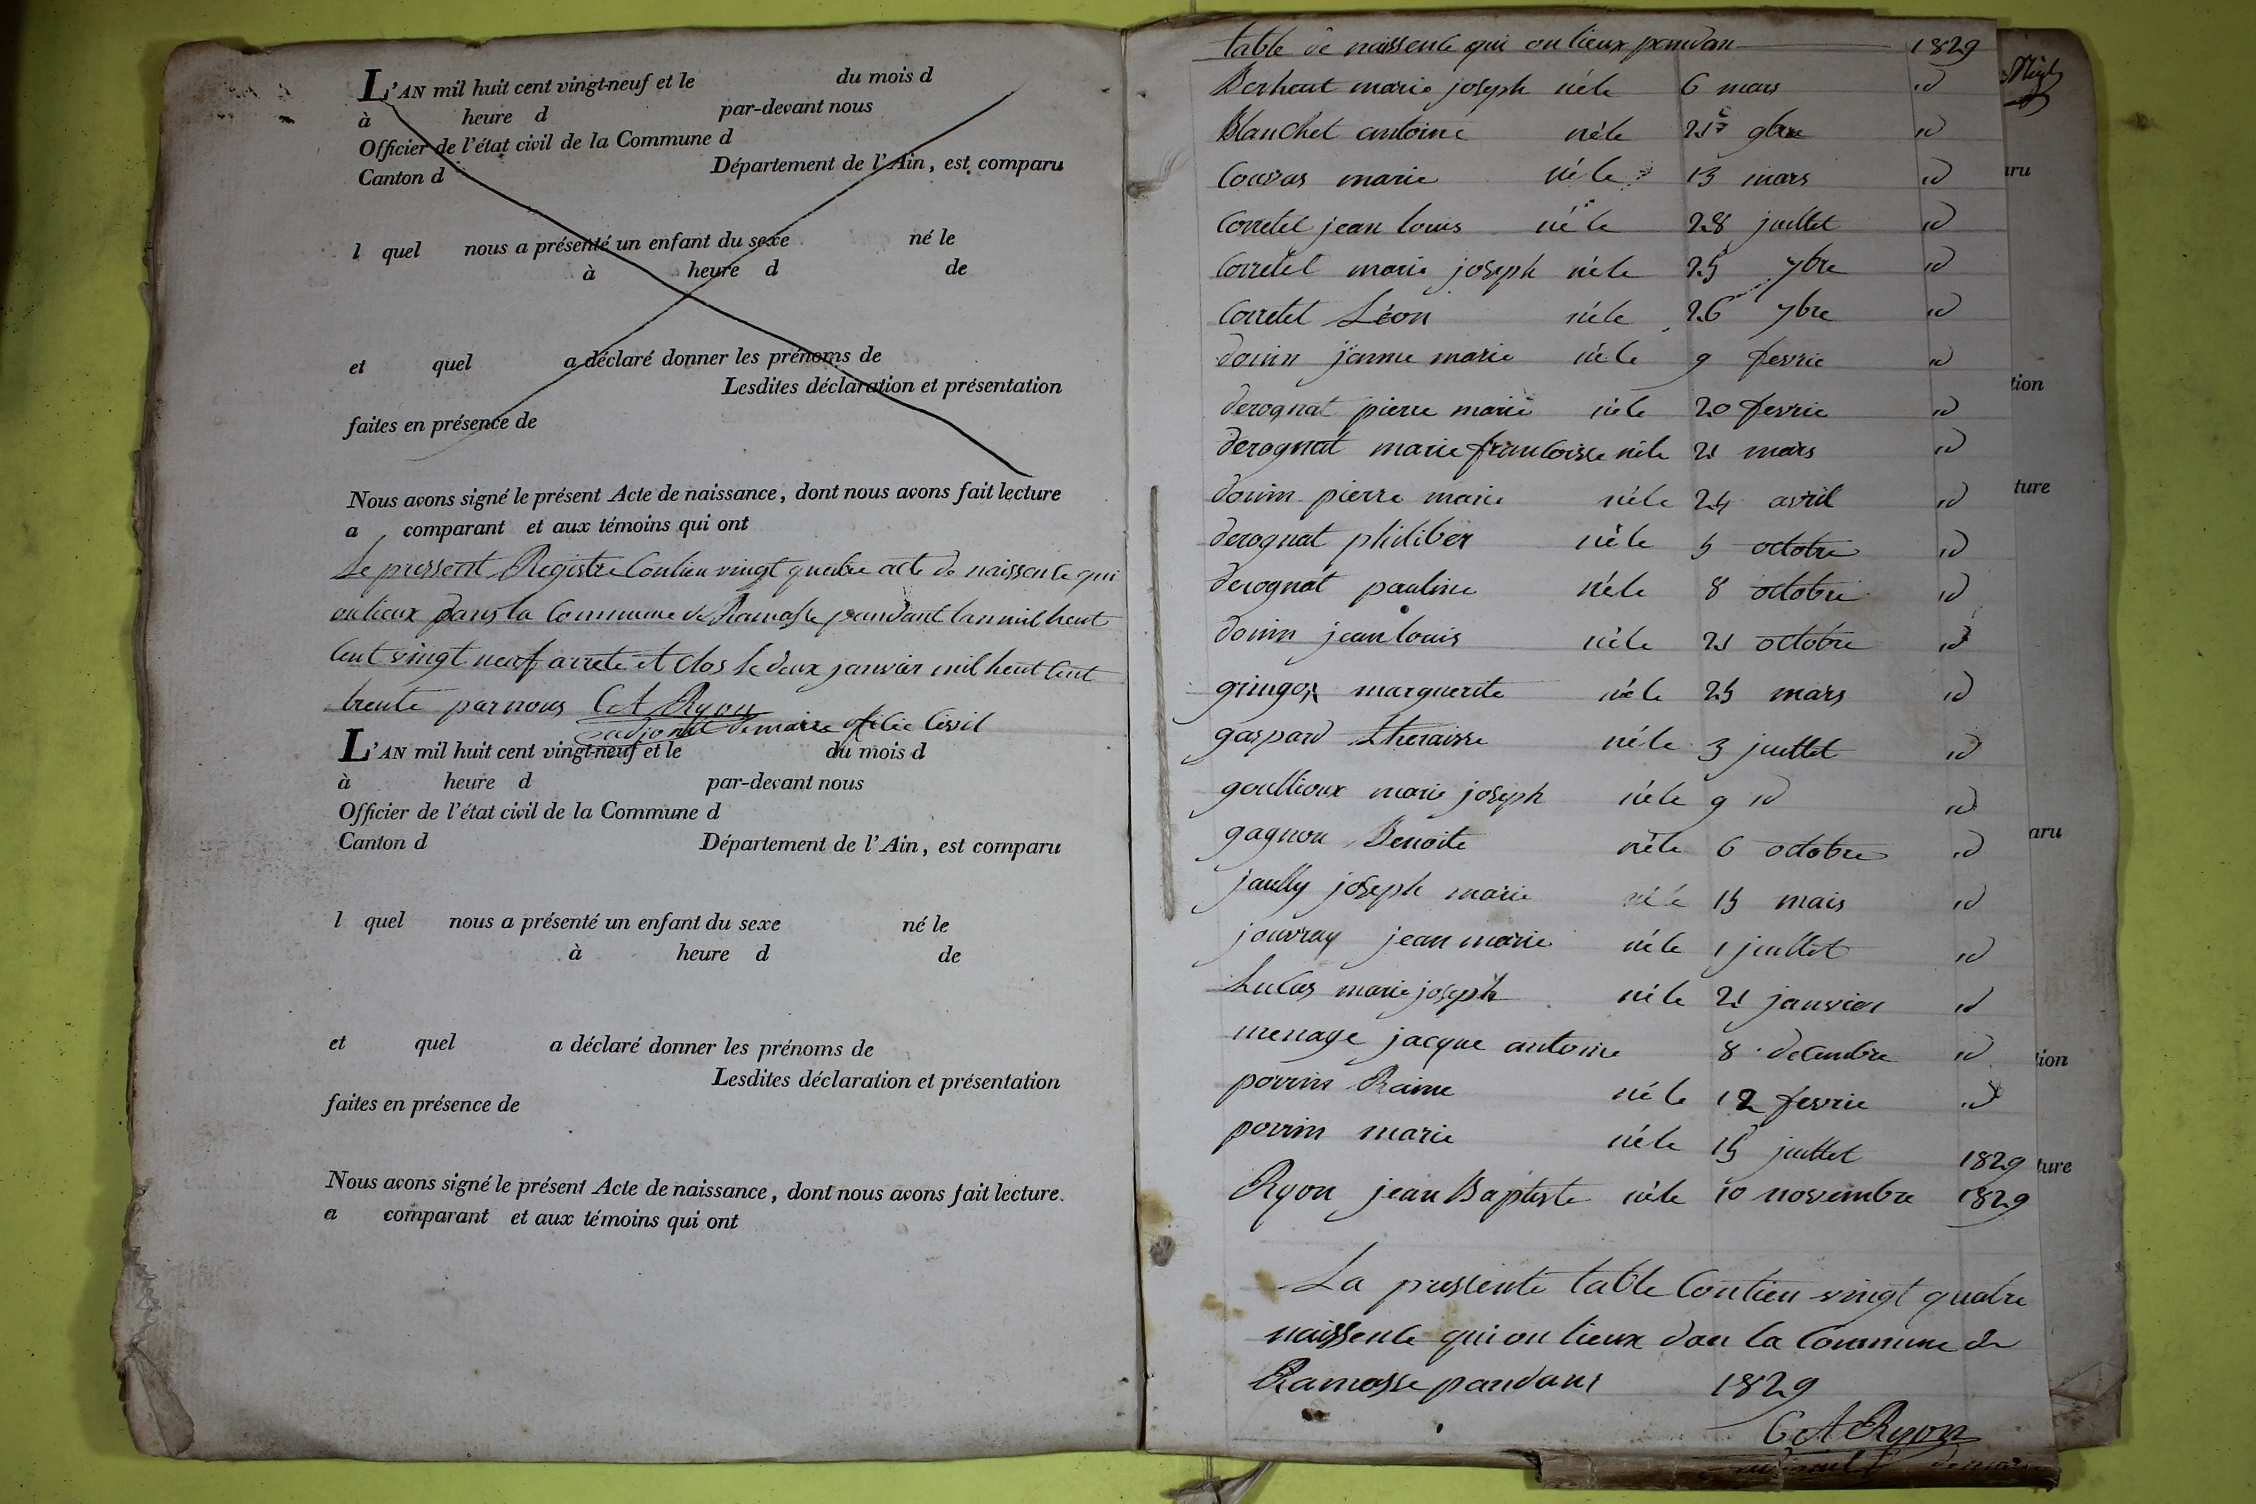 L'AN mil huit cent vingt-neuf et le du mois d
à heure d par-devant nous
Officier de l'état civil de la Commune d
Canton d Département de l'Ain, est comparu
l quel nous a présenté un enfant du sexe né le
à heure d de
et quel a déclaré donner les prénoms de
Lesdites déclaration et présentation
faites en présence de
Nous avons signé le présent Acte de naissance, dont nous avons fait lecture
a comparant et aux témoins qui ont
Le pressent Registre Contien vingt quatre acte de naissence qui
on lieux dans la Commune de Ramasse pandant lan mil heut
Cent vingt neuf arrete et Clos le deux janvier mil heut Cent
trente par nous C A Ryon
adjoint de maire oficie Civil
L'AN mil huit cent vingt-neuf et le du mois d
à heure d par-devant nous
Officier de l'état civil de la Commune d
Canton d Département de l'Ain, est comparu
l quel nous a présenté un enfant du sexe né le
à heure d de
et quel a déclaré donner les prénoms de
Lesdites déclaration et présentation
faites en présence de
Nous avons signé le présent Acte de naissance, dont nous avons fait lecture.
a comparant et aux témoins qui ont
table de naissence qui on lieux pendan 1829
marie joseph né le 6 mars id
Blanchet antoine né le 9bre id
Couvas marie né le 13 mars id
Corretel jean louis né le 28 juillet id
Corretel marie joseph né le 25 7bre id
Corretel Léon né le 26 7bre id
douin janne marie né le 9 fevrie id
derognat pierre marie né le 20 fevrie id
derognat marie francoisse né le 21 mars id
douin pierre marie né le 24 avril id
derognat philiber né le 5 octobre id
derognat pauline né le 8 octobre id
douin jean louis né le 21 octobre id
marguerite né le 25 mars id
gaspard theraisse né le 3 juillet id
goullioux marie joseph né le 9 id id
gagnon Benoite né le 6 octobre id
jaully joseph marie né le 15 mars id
jouvray jean marie né le 1 juillet id
Lucas marie joseph né le 21 janvier id
menage jacque antoine 8 decembre id
povrin Raine né le 12 fevrie id
povrin marie né le 15 juillet 1829
Ryon jean Baptiste né le 10 novembre 1829
La pressente table Contien vingt quatre
naissence qui on lieux dan la Commune de
Ramasse pandant 1829
C A Ryon
aru
tion
ture
aru
tion
ture